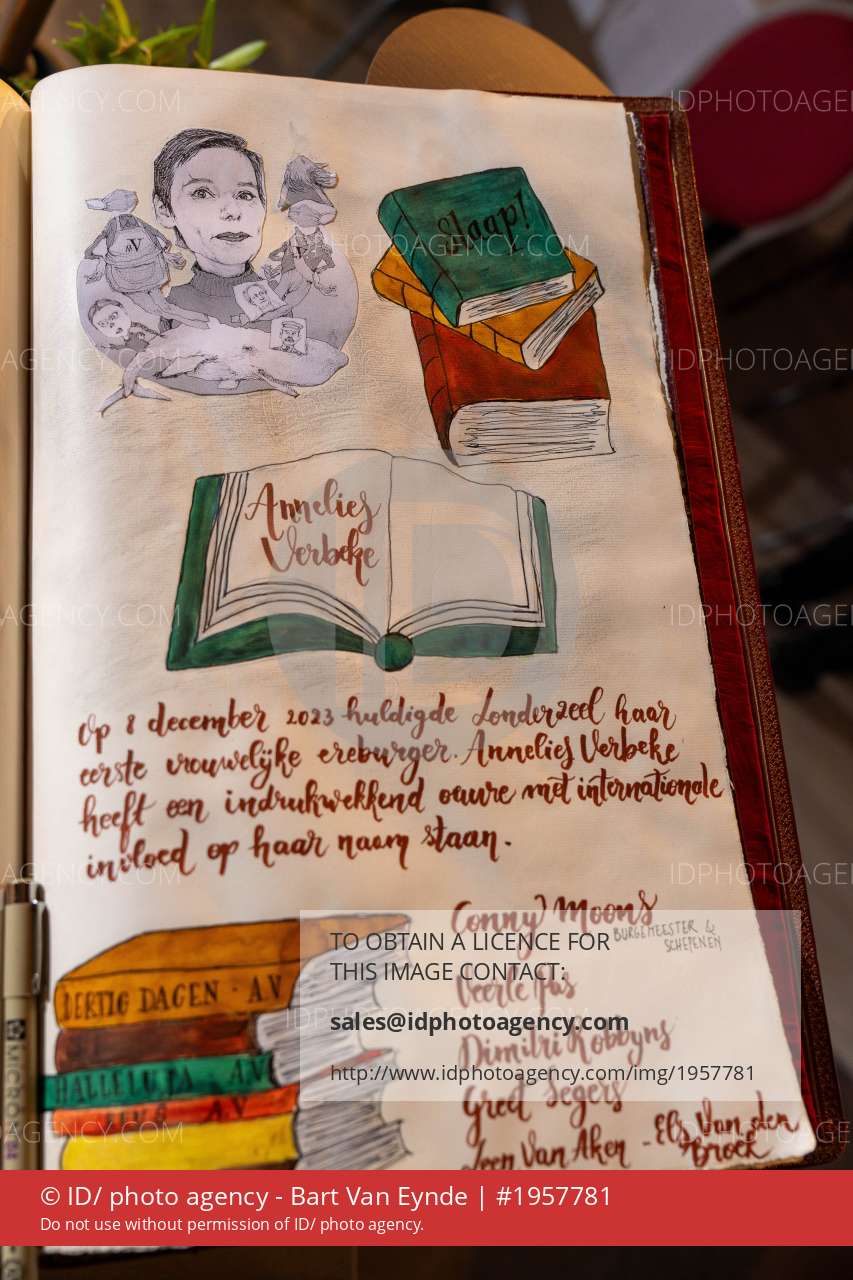 Slaap!
Annelies
Verbeke
Op 8 december 2023 huldigde Londerzeel haar
eerste vrouwelijke ereburger. Annelies Verbeke
heeft een indrukwekkend oeuvre met internationale
invloed op haar naam staan.
Conny Moons
BURGEMEESTER &
SCHEPENEN
DERTIG DAGEN · A.V
HALLELUJA A.V
A.V
Veerle
Dimitri Robbyns
Greet Segers
Leen Van Aken - Els Van den
Broeck
TO OBTAIN A LICENCE FOR
THIS IMAGE CONTACT:
sales@idphotoagency.com
http://www.idphotoagency.com/img/1957781
© ID/ photo agency - Bart Van Eynde | #1957781
Do not use without permission of ID/ photo agency.